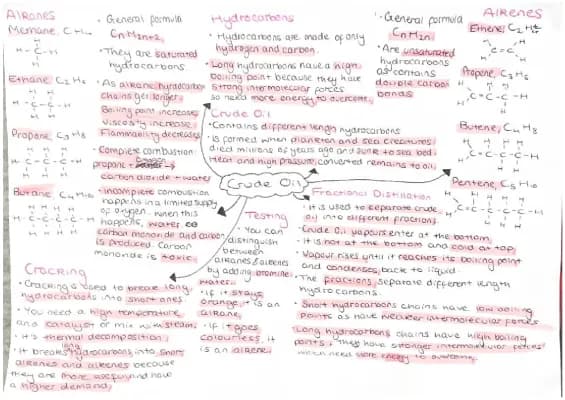 Alkanes
Methane: CH4
H
H-C-H
H
Ethane C2H6
H H
H-C-C-H
H H
Propane C3H8
H H H
H-C-C-C-H
H H H
Butane C4H10
H H H H
H-C-C-C-C-H
H H H H
• General formula
CnH2n+2
• They are saturated
hydrocarbons.
• As alkane hydrocarbon
chains get longer,
Boiling point increase
viscosity increase
Flammability decreases
• Complete combustion
propane +
carbon dioxide + water
• incomplete combustion
happens in a limited supply
of oxygen. when this
happens, water
carbon monoxide and carbon
is produced. Carbon
monoxide is toxic.
Hydrocarbons
• Hydrocarbons are made of only
hydrogen and carbon.
• Long hydrocarbons have a high
boiling point because they have
strong intermolecular forces
so need more energy to overcome.
Crude Oil
• Contains different length hydrocarbons
• is formed when plankton and sea creatures
died millions of years ago and sunk to sea bed.
Heat and high pressure converted remains to oil.
Crude Oil
• General formula
CnH2n
• Are unsaturated
hydrocarbons
as contains
double carbon
bonds
Alkenes
Ethene, C2H4
Propene, C3H6
Butene, C4H8
Pentene, C5H10
Fractional Distillation
• it is used to separate crude
oil into different fractions.
• Crude Oil vapours enter at the bottom,
• it is hot at the bottom and cold at top,
• Vapour rises until it reaches its boiling point
and condenses, back to liquid.
• The fractions separate different length
hydrocarbons.
• Short hydrocarbons chains have low boiling
points as have weaker intermolecular forces
Long hydrocarbons chains have high boiling
points, they have stronger intermolecular forces
which need more energy to overcome.
Testing
• You can
distinguish
between
alkanes & alkenes
by adding bromine
water.
• if it stays
orange, it is an
alkane,
• if it goes
colourless, it
is an alkene.
Cracking
• Cracking is used to break long
hydrocarbons into short ones.
• You need a high temperature
and catalyst or mix with steam.
• it's thermal decomposition,
• It breaks long hydrocarbons into short
alkanes and alkenes because
they are more useful and have
a higher demand,